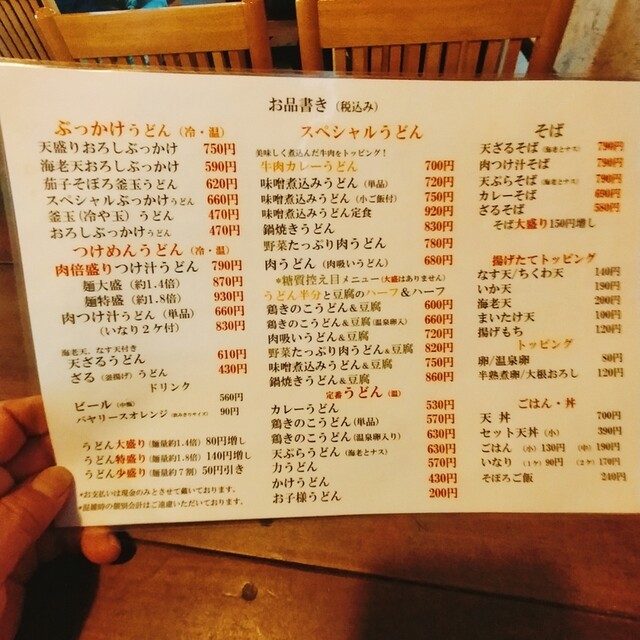 お品書き（税込み）
ぶっかけうどん（冷・温）
天盛りおろしぶっかけ 750円
海老天おろしぶっかけ 590円
茄子そぼろ釜玉うどん 620円
スペシャルぶっかけうどん 660円
釜玉（冷や玉）うどん 470円
おろしぶっかけうどん 470円
つけめんうどん（冷・温）
肉倍盛りつけ汁うどん 790円
麺大盛（約1.4倍） 870円
麺特盛（約1.8倍） 930円
肉つけ汁うどん（単品） 660円
（いなり２ケ付） 830円
海老天、なす天付き
天ざるうどん 610円
ざる（釜揚げ）うどん 430円
ドリンク
ビール（中瓶） 560円
バヤリースオレンジ（飲みきりサイズ） 90円
うどん大盛り（麺量約1.4倍）80円増し
うどん特盛り（麺量約1.8倍）140円増し
うどん少盛り（麺量約７割）50円引き
*お支払いは現金のみとさせて戴いております。
*混雑時の個別会計はご遠慮いただいております。
スペシャルうどん
美味しく煮込んだ牛肉をトッピング！
牛肉カレーうどん 700円
味噌煮込みうどん（単品） 720円
味噌煮込みうどん（小ご飯付） 750円
味噌煮込みうどん定食 920円
鍋焼きうどん 830円
野菜たっぷり肉うどん 780円
肉うどん（肉吸いうどん） 680円
*糖質控え目メニュー（大盛はありません）
うどん半分と豆腐のハーフ＆ハーフ
鶏きのこうどん＆豆腐 600円
鶏きのこうどん＆豆腐（温泉卵入） 660円
肉吸いうどん＆豆腐 720円
野菜たっぷり肉うどん＆豆腐 820円
味噌煮込みうどん＆豆腐 750円
鍋焼きうどん＆豆腐 860円
定番うどん（温）
カレーうどん 530円
鶏きのこうどん（単品） 570円
鶏きのこうどん（温泉卵入り） 630円
天ぷらうどん（海老とナス） 630円
力うどん 570円
かけうどん 430円
お子様うどん 200円
そば
天ざるそば（海老とナス） 790円
肉つけ汁そば 790円
天ぷらそば（海老とナス） 790円
カレーそば 690円
ざるそば 580円
そば大盛り150円増し
揚げたてトッピング
なす天/ちくわ天 140円
いか天 190円
海老天 200円
まいたけ天 100円
揚げもち 120円
トッピング
卵/温泉卵 80円
半熟煮卵/大根おろし 120円
ごはん・丼
天丼 700円
セット天丼（小） 390円
ごはん（小）130円（中）190円
いなり（1ケ）90円（2ケ）170円
そぼろご飯 240円